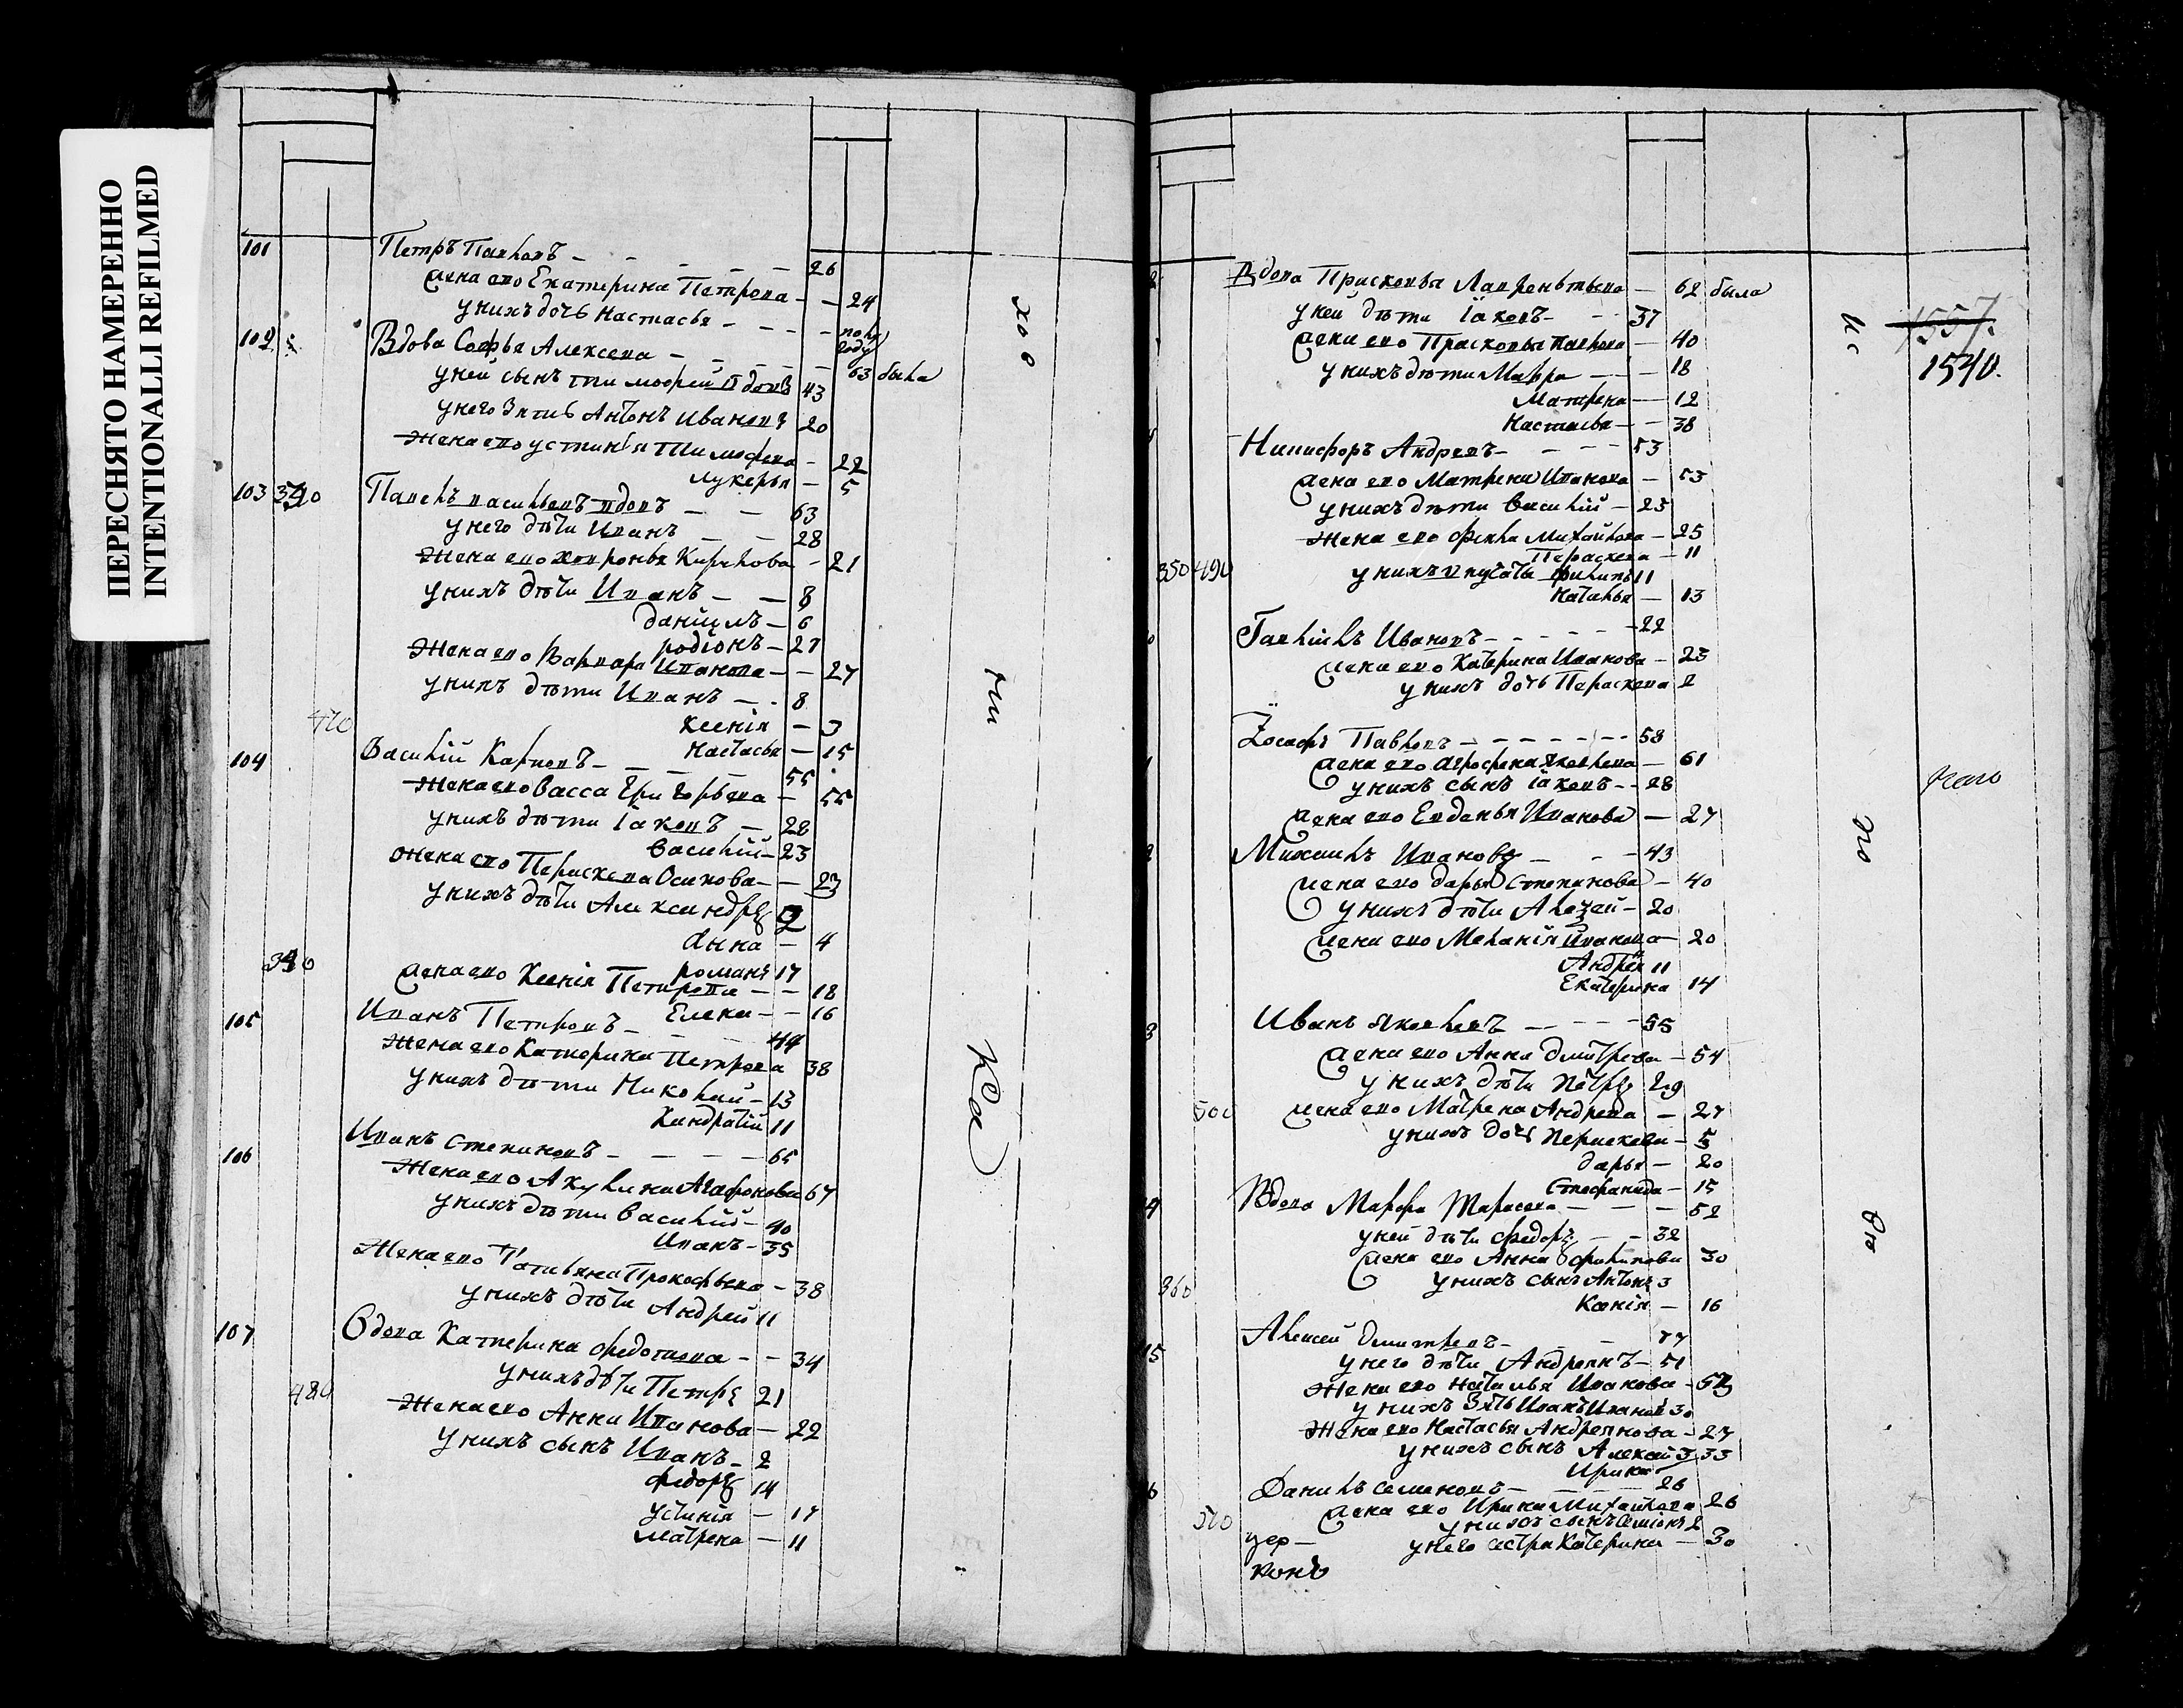 ПЕРЕСНЯТО НАМЕРЕННО
INTENTIONALLI REFILMED
101 Петръ Павловъ — 26
Жена ево Екатерина Петрова — 24
у нихъ дочь Настасья — полу году
102 Вдова Софья Алексева — 63 была
у ней сынъ Тимофей вдовъ 43
у него зять Антонъ Ивановъ 20
Жена ево Устинья Тимофева — 22
Лукерья — 5
103 Павелъ Васильевъ вдовъ — 63
у него дѣти Иванъ — 28
Жена ево Кирилова — 21
у нихъ дѣти Иванъ — 8
Даніилъ — 6
Родіонъ — 27
Жена ево Варвара Иванова — 27
у нихъ дѣти Иванъ — 8
470 Ксенія — 3
Настасья — 15
104 Василій Карповъ — 55
Жена ево Васса Григорьева — 55
у нихъ дѣти Іаковъ — 28
Василій — 23
Жена ево Параскева Осипова — 23
у нихъ дѣти Александръ 2
Анна — 4
Романъ 17
Жена ево Ксенія Петрова — 18
Елена — 16
105 Иванъ Петровъ — 44
Жена ево Катерина Петрова 38
у нихъ дѣти Николай — 13
Кандратій 11
106 Иванъ Степановъ — 65
Жена ево Акулина Агафонова 67
у нихъ дѣти Василий — 40
Иванъ — 35
Жена ево Татьяна Прокофьева — 38
у нихъ дѣти Андрей 11
107 Вдова Катерина Федотова — 34
у нихъ дѣти Петръ 21
480 Жена ево Анна Иванова — 22
у нихъ сынъ Иванъ — 2
Федоръ 14
Устинія — 17
Матрена — 11
хо
ти
Ка
Вдова Прасковья Лаврентьева — 62 была
у ней дѣти Іаковъ — 37
Жена ево Прасковья Павлова — 40
у нихъ дѣти Мавра — 18
Матрена — 12
Настасья — 38
Никифоръ Андреевъ — 53
Жена ево Матрена Иванова — 53
у нихъ дѣти Василій — 25
Жена ево Фекла Михайлова — 25
Параскева — 11
350 490 у нихъ внучата Филипъ 11
Наталья — 13
Гавшилъ Ивановъ — 22
Жена ево Катерина Иванова — 23
у нихъ дочь Параскева 2
Іосафъ Павловъ — 58
Жена ево Агрофена Яковлева — 61
у нихъ сынъ Іаковъ — 28
Жена ево Евдокья Иванова — 27
Михаилъ Ивановъ — 43
Жена ево Дарья Степанова — 40
у нихъ дѣти Алезей — 20
Жена ево Меланія Иванова — 20
Андрей 11
Екатерина 14
Иванъ Яковлевъ — 55
Жена ево Анна Дмитрева — 54
у нихъ дѣти Петръ 29
500 Жена ево Матрена Андрева — 27
у нихъ дочь Параскева — 5
Дарья — 20
Стефанида — 15
Вдова Марфа Тарасова — 52
у ней дѣти Федоръ — 32
Жена ево Анна Филипова 30
360 у нихъ сынъ Антонъ 3
Ксенія — 16
Алексей Дмитревъ — 77
у него дѣти Андреянъ — 51
Жена ево Наталья Иванова — 52
у нихъ зять Иванъ Ивановъ 30
Жена ево Настасья Андреянова — 27
у нихъ сынъ Алексей 3 33
Ирина
Данилъ Семеновъ — 26
Жена ево Ирина Михайлова 26
510 у нихъ сынъ Симіонъ 2
у него сестра Катерина — 30
цер—
ковь
ис
по
вѣ
1557.
1540.